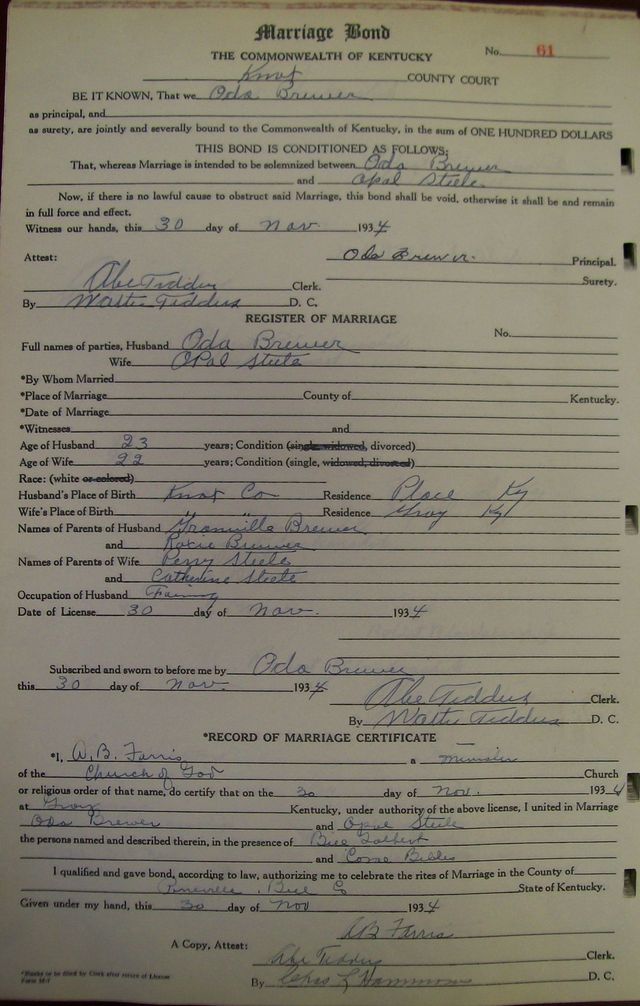 Marriage Bond
THE COMMONWEALTH OF KENTUCKY
No. 61
Knox COUNTY COURT
BE IT KNOWN, That we Oda Brewer
as principal, and
as surety, are jointly and severally bound to the Commonwealth of Kentucky, in the sum of ONE HUNDRED DOLLARS
THIS BOND IS CONDITIONED AS FOLLOWS:
That, whereas Marriage is intended to be solemnized between Oda Brewer
and Opal Steele
Now, if there is no lawful cause to obstruct said Marriage, this bond shall be void, otherwise it shall be and remain
in full force and effect.
Witness our hands, this 30 day of Nov 1934
Attest: Oda Brewer Principal.
Abe Tedders Clerk. Surety.
By Walter Tedders D. C.
REGISTER OF MARRIAGE
No.
Full names of parties, Husband Oda Brewer
Wife Opal Steele
*By Whom Married
*Place of Marriage County of Kentucky.
*Date of Marriage
*Witnesses and
Age of Husband 23 years; Condition (single, widowed, divorced)
Age of Wife 22 years; Condition (single, widowed, divorced)
Race: (white or colored)
Husband's Place of Birth Knox Co Residence Place Ky
Wife's Place of Birth " " Residence Gray Ky
Names of Parents of Husband Granville Brewer
and Roxie Brewer
Names of Parents of Wife Perry Steele
and Catherine Steele
Occupation of Husband Farming
Date of License 30 day of Nov. 1934
Subscribed and sworn to before me by Oda Brewer
this 30 day of Nov. 1934
Abe Tedders Clerk.
By Walter Tedders D. C.
*RECORD OF MARRIAGE CERTIFICATE
*I, W. B. Farris a Minister
of the Church of God Church
or religious order of that name, do certify that on the 30 day of Nov. 1934
at Gray Kentucky, under authority of the above license, I united in Marriage
Oda Brewer and Opal Steele
the persons named and described therein, in the presence of Bill
and
I qualified and gave bond, according to law, authorizing me to celebrate the rites of Marriage in the County of
Pineville, Bell Co State of Kentucky.
Given under my hand, this 30 day of Nov 1934
WB Farris
A Copy, Attest: Abe Tedders Clerk.
By Chas L Hammons D. C.
*Blanks to be filled by Clerk after return of License